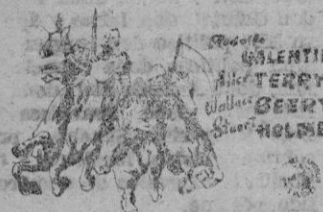 Rudolfo
VALENTI
Alice TERRY
Wallace BEERY
Stuart HOLMES